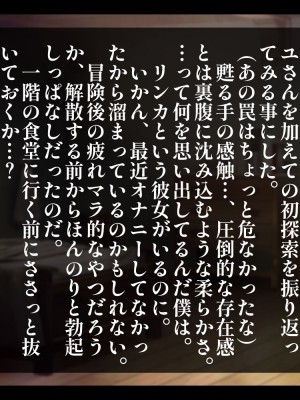 ユさんを加えての初探索を振り返っ
てみる事にした。
(あの罠はちょっと危なかったな)
甦る手の感触…、圧倒的な存在感
とは裏腹に沈み込むような柔らかさ。
…って何を思い出してるんだ僕は。
リンカという彼女がいるのに。
いかん、最近オナニーしてなかっ
たから溜まっているのかもしれない。
冒険後の疲れマラ的なやつだろう
か、解散する前からほんのりと勃起
しっぱなしだったのだ。
一階の食堂に行く前にささっと抜
いておくか…？